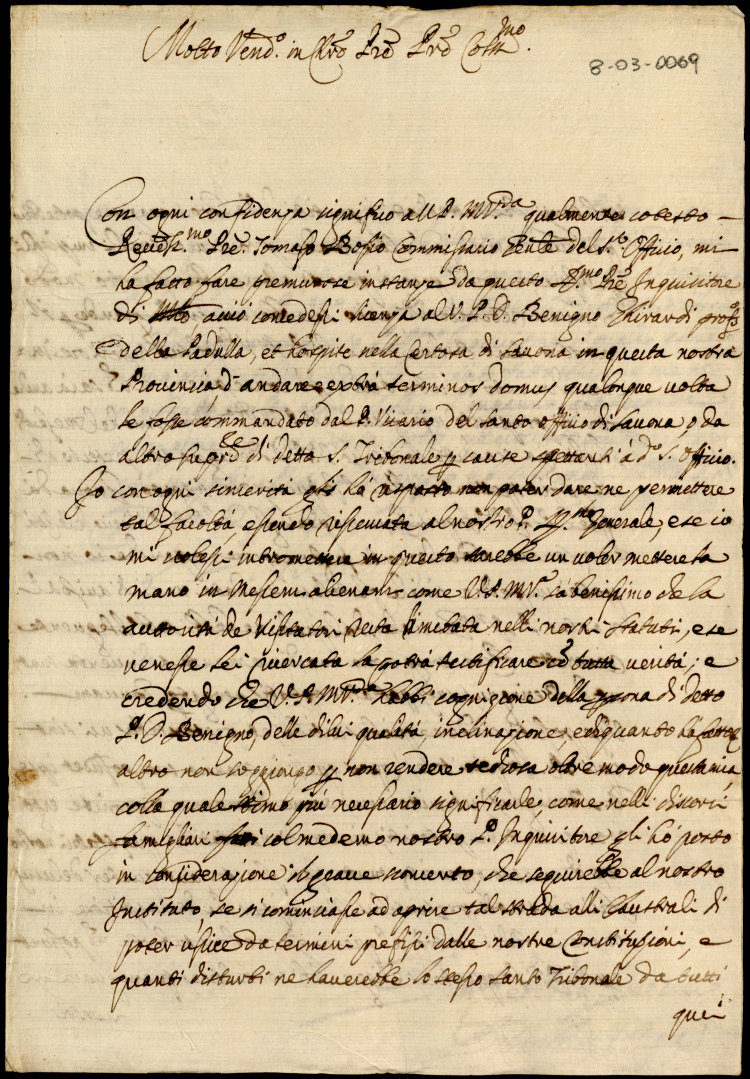 Molto Vend.o in Chro Pre Prō Coll.mo
8-03-0069
Con ogni confidenza significo all P. M.V.da qualmente cotesto
Reverss.mo Pre. Tomaso Bosio Commissario Gente del s.to Officio, mi
ha fatto fare premurose instanze da questo R.mo Pre Inquisitore
di acciò concedessi licenza al V. P. D. Benigno Ghirardi profo
della Padulla, et hospite nella Certosa di Savona in questa nostra
Provincia d'andare extra terminos domus qualonque volta
le fosse commandato dal P. Vicario del santo officio di Savona, o da
altro di detto S. Tribonale p cause spettanti à do S. officio.
Io con ogni sincerità gli hò risposto non poter dare ne permettere
tal facoltà, essendo riservata al nostro P. R.mo Generale, e se io
mi volessi intromettere in questo sarebbe un voler mettere la
mano in Messem alienam come V.P. M.V. sà benissimo che la
autorità de Visitatori resta limitata nelli nostri statuti, e se
venesse lei ricercata la potrà testificare con tutta verità; e
credendo che V. P. M.V.da habbi cognizione della psona di detto
P. D. Benigno, delle di lui qualità, inclinazione, e di quanto ha fatto
altro non soggiongo p non rendere tediosa oltre modo questa mia,
colla quale stimo più necessario significarle, come nelli discorsi
famigliari fatti col medemo nostro P. Inquisitore gli hò posto
in considerazione il grave sconcerto, che seguirebbe al nostro
Instituto, se si cominciasse ad aprire tal strada alli Claustrali di
poter uscire da termini prefissi dalle nostre Constitusioni, e
quanti disturbi ne haverebbe lo stesso santo Tribonale da tutti
quei